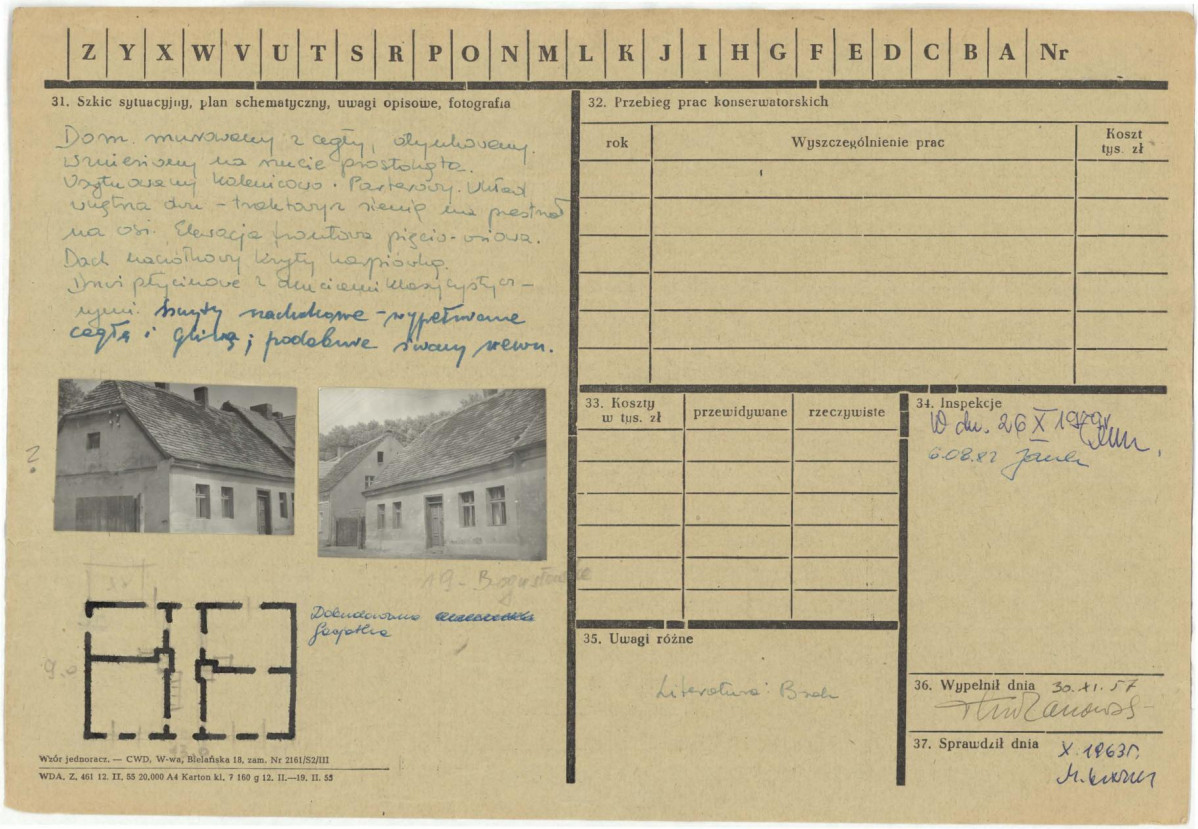 Z Y X W V U T S R P O N M L K J I H G F E D C B A Nr
31. Szkic sytuacyjny, plan schematyczny, uwagi opisowe, fotografia
Dom murowany z cegły, otynkowany.
Wzniesiony na rzucie prostokąta.
Usytuowany kalenicowo. Parterowy. Układ
wnętrza dwu-traktowy z sienią na przestrzał
na osi. Elewacja frontowa pięcio-osiowa.
Dach naczółkowy kryty karpiówką.
Drzwi płycinowe z okuciami klasycystycz-
nymi. Szczyty nachołkowe - wypełniane
cegłą i gliną; podobnie ściany wewn.
?
19 - Bogusławskie
Dobudowano
9.0
13.0
Wzór jednoracz. — CWD, W-wa, Bielańska 18, zam. Nr 2161/S2/III
WDA. Z. 461 12. II. 55 20,000 A4 Karton kl. 7 160 g 12. II.—19. II. 55
32. Przebieg prac konserwatorskich
rok
Wyszczególnienie prac
Koszt
tys. zł
33. Koszty
w tys. zł
przewidywane
rzeczywiste
34. Inspekcje
W dn. 26 X 1979r
6.08.82
35. Uwagi różne
Literatura: Brak
36. Wypełnił dnia 30.XI.57
37. Sprawdził dnia
X.1963r.